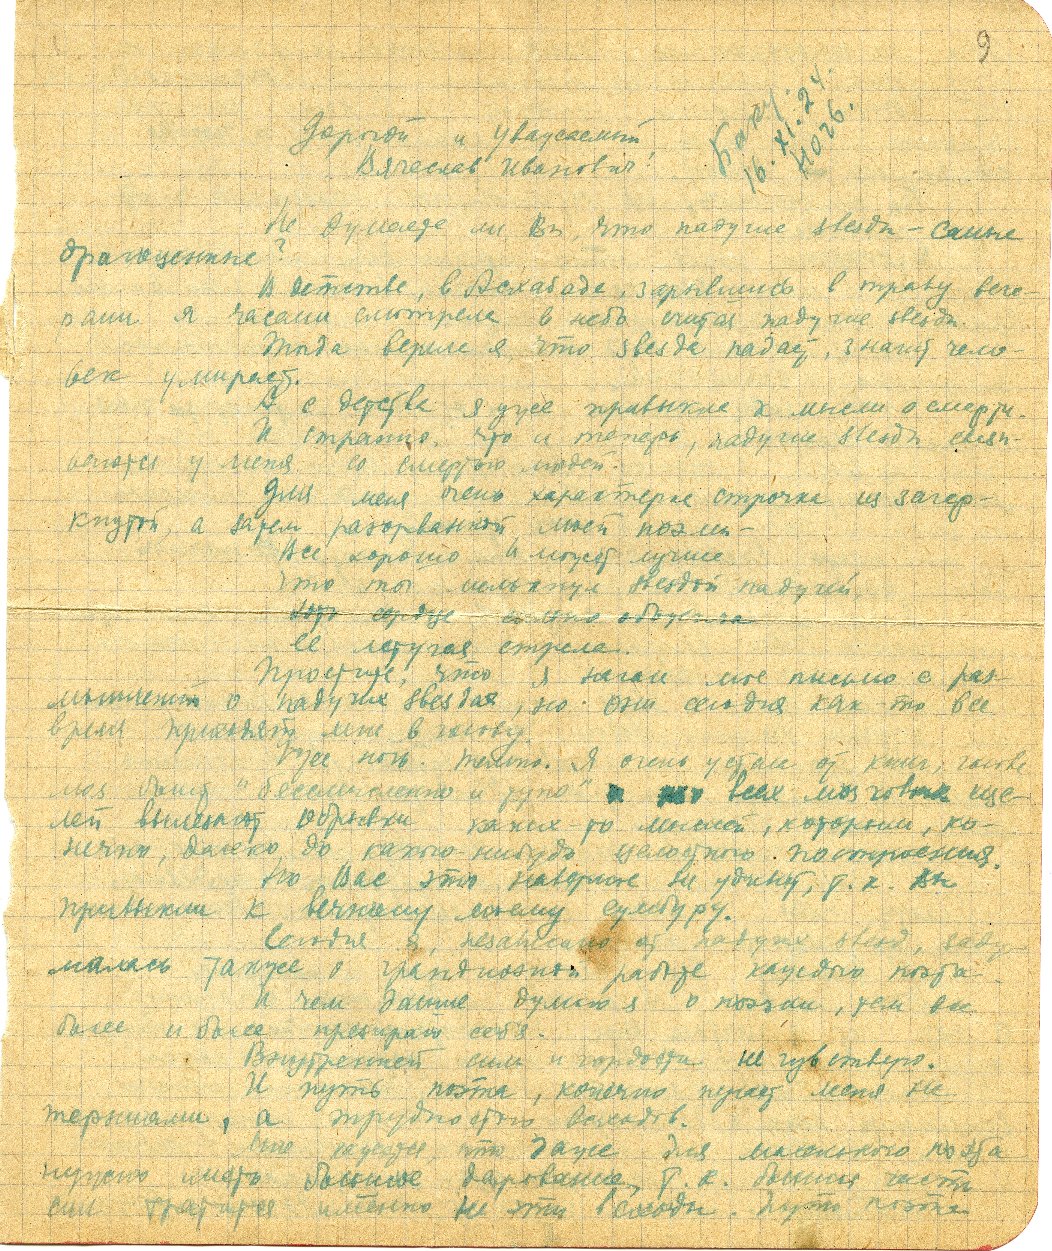 9
Баку.
16.XI.24.
Ночь.
Дорогой и уважаемый
Вячеслав Иванович!
Не думаете ли Вы, что падучие звезды – самые
драгоценные?
В детстве, в Асхабаде, зарывшись в траву вече-
рами я часами смотрела в небо считая падучие звезды.
Тогда верила я, что звезда падает, значит чело-
век умирает.
И с детства я уже привыкла к мысли о смерти.
И странно, что и теперь, падучие звезды связы-
ваются у меня со смертью людей.
Для меня очень характерна строчка из зачер-
кнутой, а затем разорванной моей поэмы –
Все хорошо и может лучше
Что ты мелькнул звездой падучей,
сердце обожгла
ее летучая стрела.
Простите, что я начала мое письмо с раз-
мышлений о падучих звездах, но они сегодня как-то все
время приходят мне в голову.
Уже ночь. Темно. Я очень устала от книг, голова
моя болит "бессмысленно и тупо" всех мозговых ще-
лей вылезают обрывки каких-то мыслей, которым, ко-
нечно, далеко до какого-нибудь целостного построения.
Но Вас это наверное не удивит, т.к. Вы
привыкли к вечному моему сумбуру.
Сегодня я, независимо от падучих звезд, заду-
малась также о грандиозной работе каждого поэта.
И чем дальше думаю я о поэзии, тем все
более и более презираю себя.
Внутренней силы и гордости не чувствую.
И путь поэта, конечно пугает меня не
терниями, а трудностью всходов.
Мне кажется, что даже для маленького поэта
нужно иметь большое дарование, т.к. большая часть
сил тратится именно на эти всходы. Путь поэта